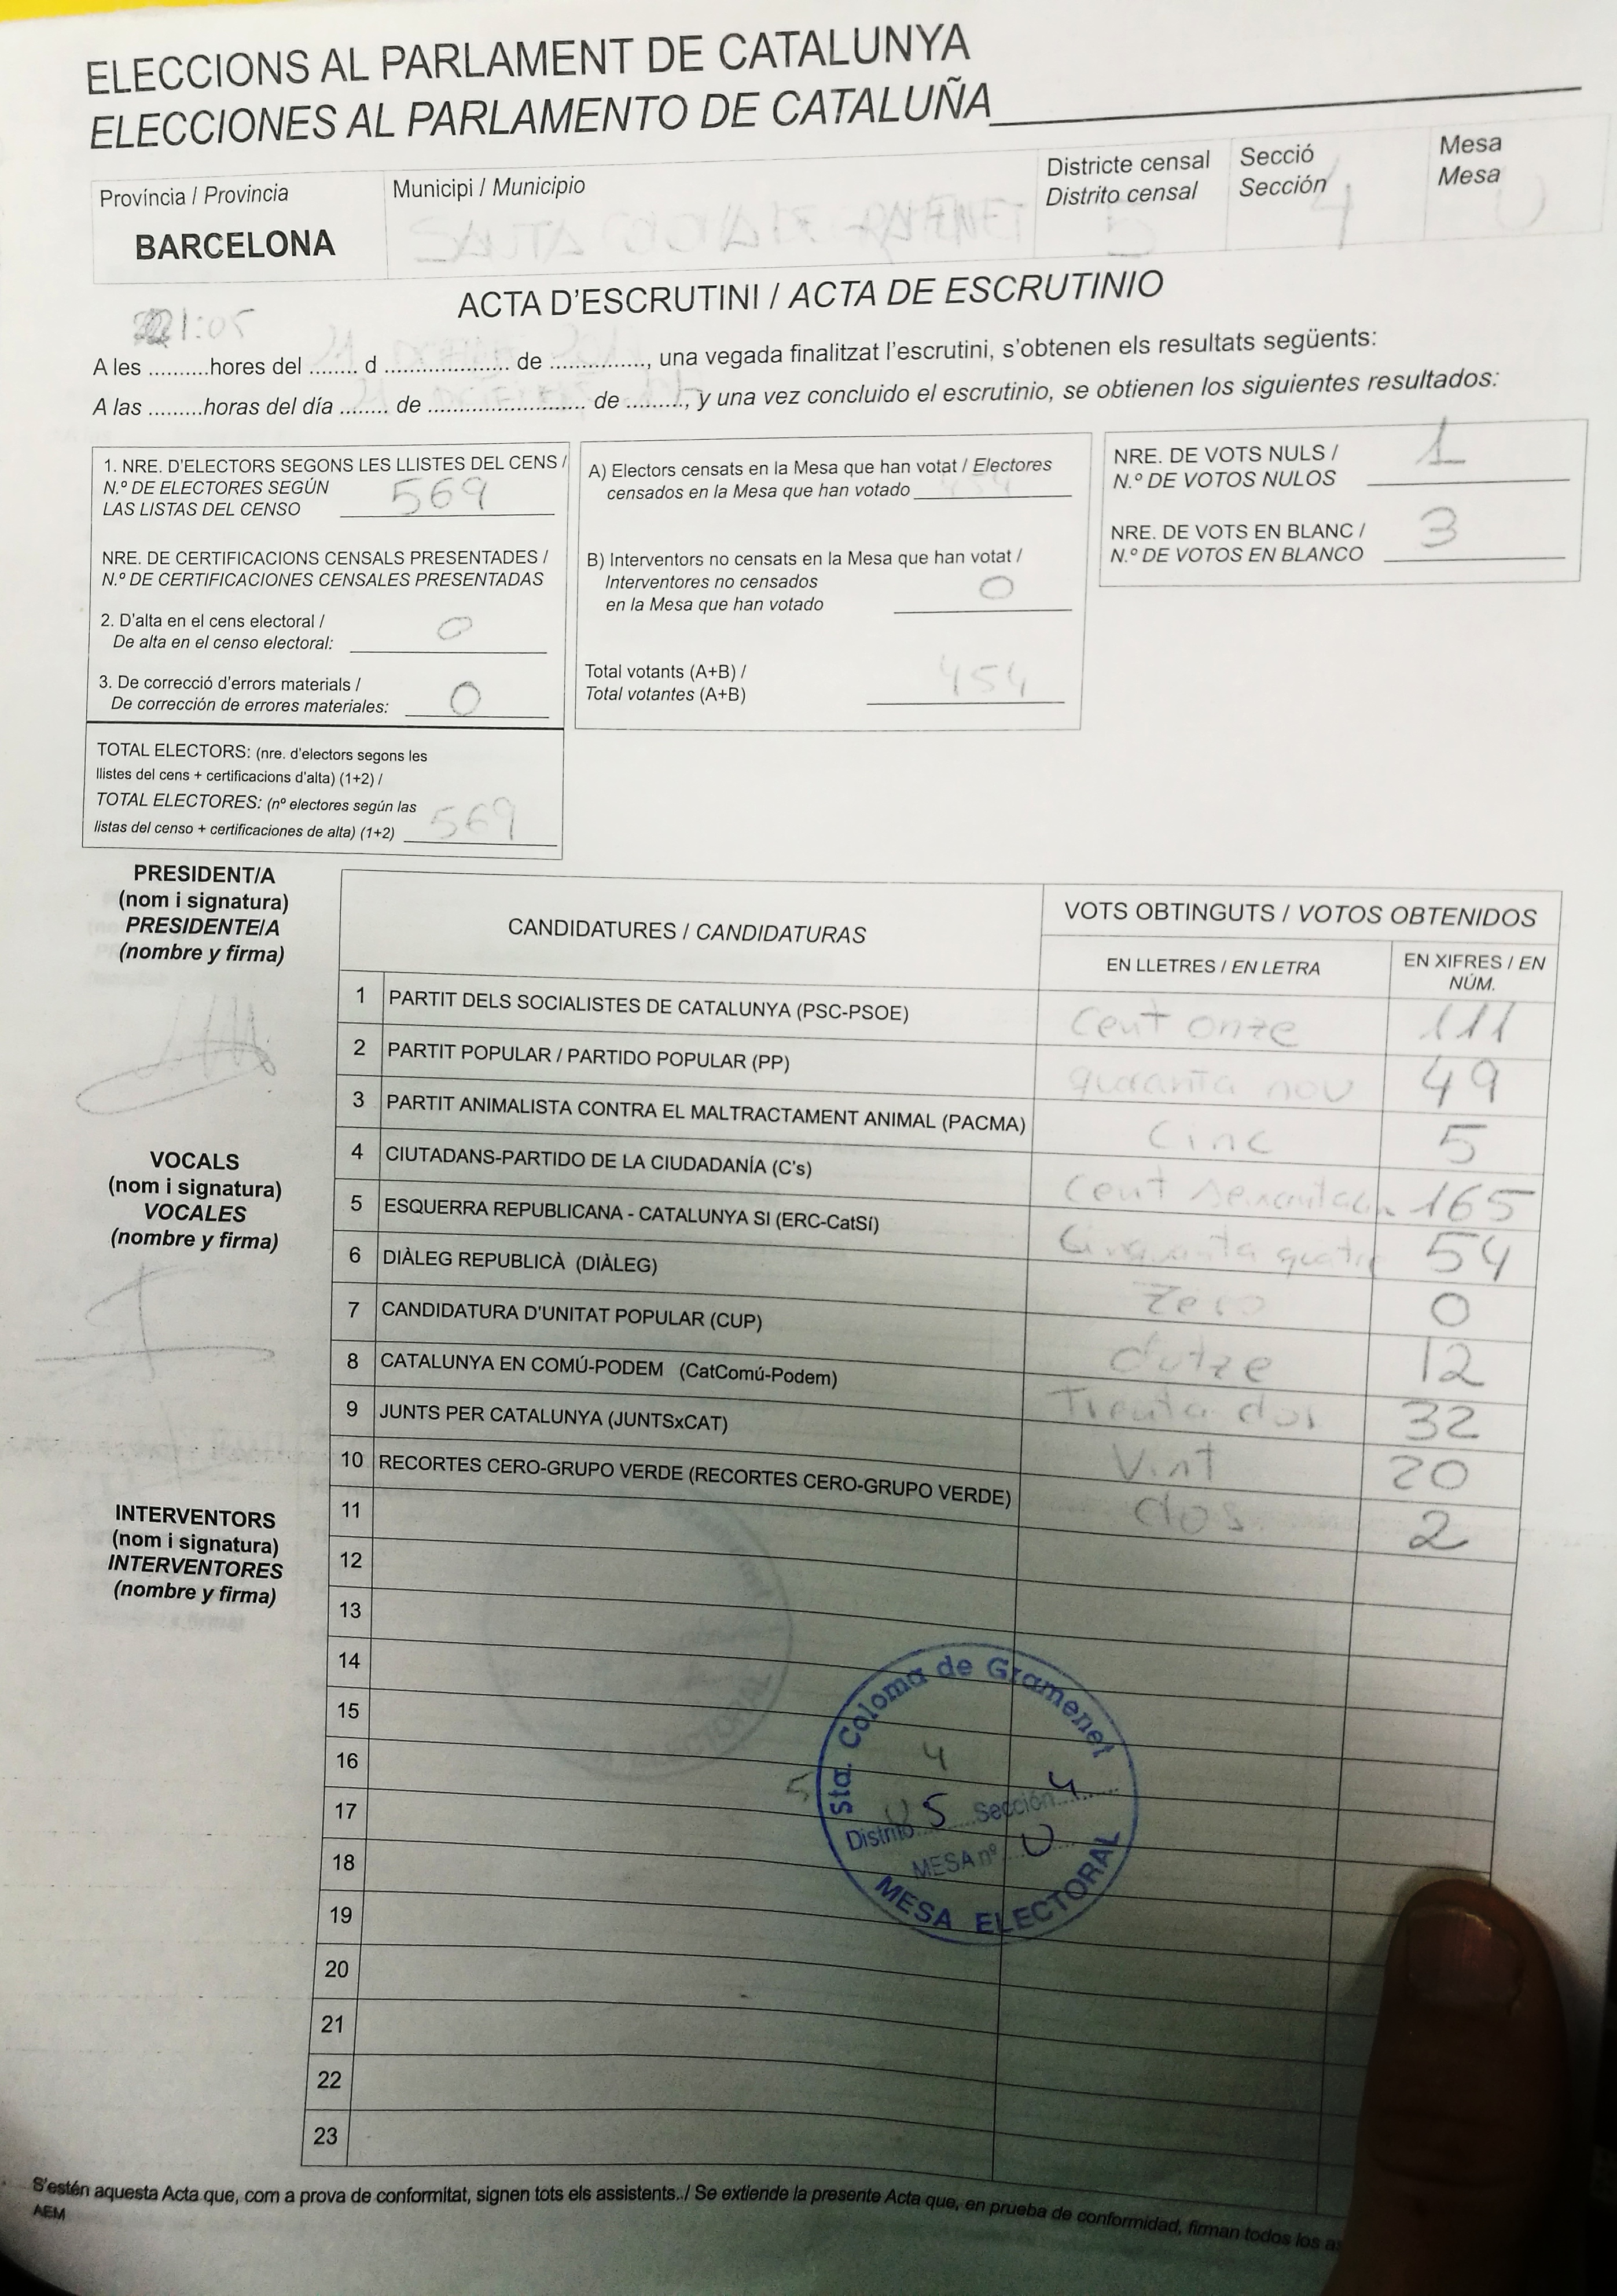 ELECCIONS AL PARLAMENT DE CATALUNYA
ELECCIONES AL PARLAMENTO DE CATALUÑA
Província / Provincia
BARCELONA
Municipi / Municipio
Districte censal
Distrito censal
5
Secció
Sección
4
Mesa
Mesa
U
ACTA D'ESCRUTINI / ACTA DE ESCRUTINIO
21:05
A les ..........hores del ........ d .................... de ..............., una vegada finalitzat l'escrutini, s'obtenen els resultats següents:
A las .........horas del día ........ de .......................... de ........., y una vez concluido el escrutinio, se obtienen los siguientes resultados:
1. NRE. D'ELECTORS SEGONS LES LLISTES DEL CENS /
N.º DE ELECTORES SEGÚN
LAS LISTAS DEL CENSO 569
NRE. DE CERTIFICACIONS CENSALS PRESENTADES /
N.º DE CERTIFICACIONES CENSALES PRESENTADAS
2. D'alta en el cens electoral /
De alta en el censo electoral: 0
3. De correcció d'errors materials /
De corrección de errores materiales: 0
TOTAL ELECTORS: (nre. d'electors segons les
llistes del cens + certificacions d'alta) (1+2) /
TOTAL ELECTORES: (nº electores según las
listas del censo + certificaciones de alta) (1+2) 569
A) Electors censats en la Mesa que han votat / Electores
censados en la Mesa que han votado 454
B) Interventors no censats en la Mesa que han votat /
Interventores no censados
en la Mesa que han votado 0
Total votants (A+B) /
Total votantes (A+B) 454
NRE. DE VOTS NULS /
N.º DE VOTOS NULOS 1
NRE. DE VOTS EN BLANC /
N.º DE VOTOS EN BLANCO 3
PRESIDENT/A
(nom i signatura)
PRESIDENTE/A
(nombre y firma)
VOCALS
(nom i signatura)
VOCALES
(nombre y firma)
INTERVENTORS
(nom i signatura)
INTERVENTORES
(nombre y firma)
CANDIDATURES / CANDIDATURAS
VOTS OBTINGUTS / VOTOS OBTENIDOS
EN LLETRES / EN LETRA
EN XIFRES / EN
NÚM.
1 PARTIT DELS SOCIALISTES DE CATALUNYA (PSC-PSOE) Cent onze 111
2 PARTIT POPULAR / PARTIDO POPULAR (PP) quaranta nou 49
3 PARTIT ANIMALISTA CONTRA EL MALTRACTAMENT ANIMAL (PACMA) Cinc 5
4 CIUTADANS-PARTIDO DE LA CIUDADANÍA (C's) Cent 165
5 ESQUERRA REPUBLICANA - CATALUNYA SI (ERC-CatSí) Cinquanta quatre 54
6 DIÀLEG REPUBLICÀ (DIÀLEG) Zero 0
7 CANDIDATURA D'UNITAT POPULAR (CUP) dotze 12
8 CATALUNYA EN COMÚ-PODEM (CatComú-Podem) Trenta dos 32
9 JUNTS PER CATALUNYA (JUNTSxCAT) Vint 20
10 RECORTES CERO-GRUPO VERDE (RECORTES CERO-GRUPO VERDE) dos 2
11
12
13
14
15
16
17
18
19
20
21
22
23
Sta. Coloma de Gramenet
4
5
Distrito 5 Sección 4
MESA nº U
MESA ELECTORAL
S'estén aquesta Acta que, com a prova de conformitat, signen tots els assistents../ Se extiende la presente Acta que, en prueba de conformidad, firman todos los
AEM